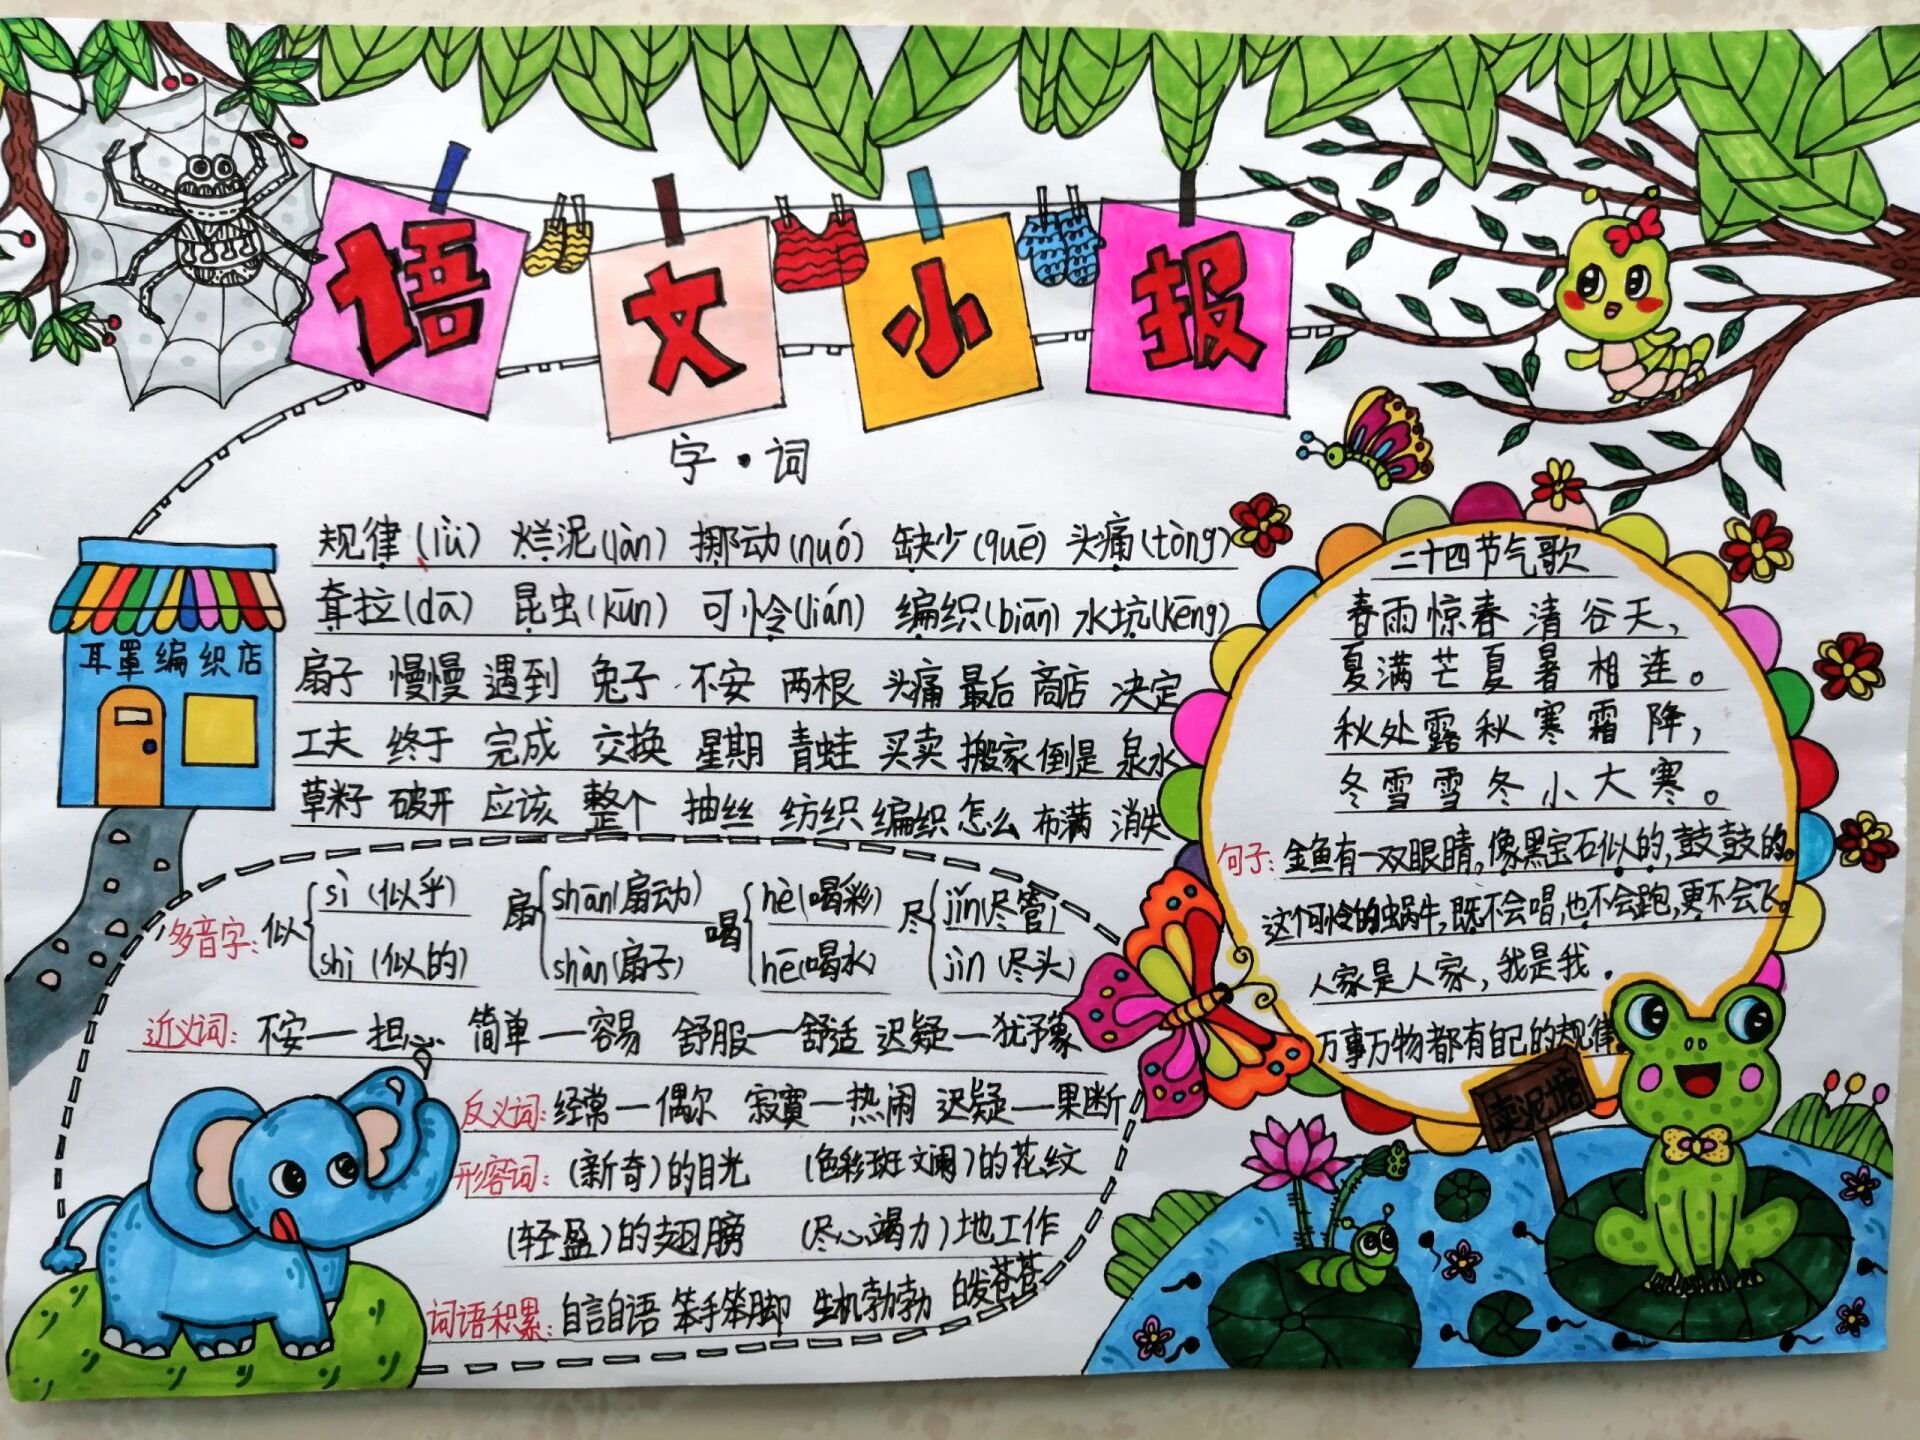 语文小报
字·词
规律(lǜ) 烂泥(làn) 挪动(nuó) 缺少(quē) 头痛(tòng)
耷拉(dā) 昆虫(kūn) 可怜(lián) 编织(biān) 水坑(kēng)
扇子 慢慢 遇到 兔子 不安 两根 头痛 最后 商店 决定
工夫 终于 完成 交换 星期 青蛙 买卖 搬家 倒是 泉水
草籽 破开 应该 整个 抽丝 纺织 编织 怎么 布满 消失
耳罩编织店
多音字: 似 sì (似乎) shì (似的) 扇 shān(扇动) shàn(扇子) 喝 hè(喝彩) hē(喝水) 尽 jǐn(尽管) jìn (尽头)
近义词: 不安—担心 简单—容易 舒服—舒适 迟疑—犹豫
反义词: 经常—偶尔 寂寞—热闹 迟疑—果断
形容词: (新奇)的目光 (色彩斑斓)的花纹
(轻盈)的翅膀 (尽心竭力)地工作
词语积累: 自言自语 笨手笨脚 生机勃勃 白发苍苍
二十四节气歌
春雨惊春清谷天,
夏满芒夏暑相连。
秋处露秋寒霜降,
冬雪雪冬小大寒。
句子: 金鱼有一双眼睛,像黑宝石似的,鼓鼓的。
这个可怜的蜗牛,既不会唱,也不会跑,更不会飞。
人家是人家,我是我。
万事万物都有自己的规律
卖泥塘